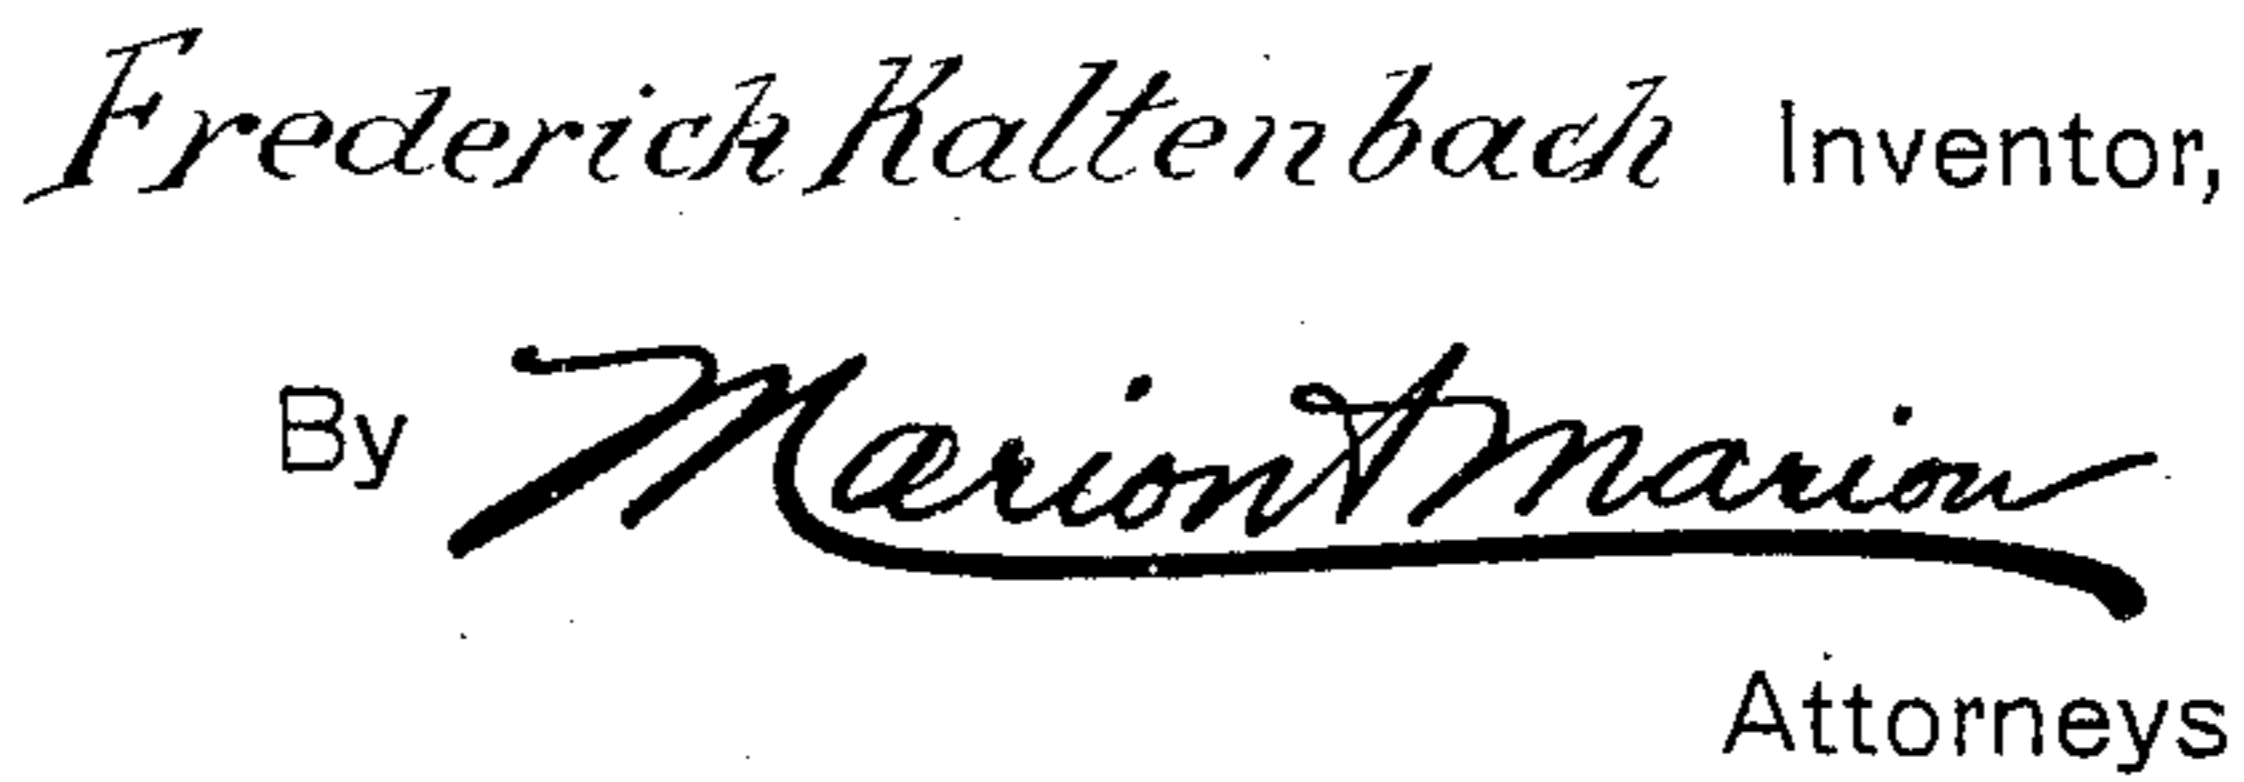 Frederick Kaltenbach Inventor,
By Marion & Marion
Attorneys